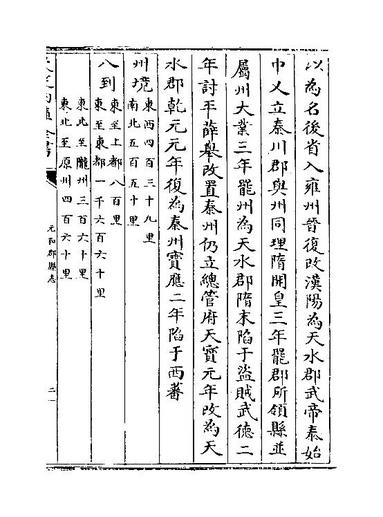 以為名後省入雍州晉復改漢陽為天水郡武帝泰始
中又立秦川郡與州同理隋開皇三年罷郡所領縣並
屬州大業三年罷州為天水郡隋末陷于盜賊武德二
年討平薛舉改置秦州仍立總管府天寶元年改為天
水郡乾元元年復為秦州寶應二年陷于西蕃
州境東西四百三十九里
南北五百五十里
八到東至上都八百里
東至東都一千六百六十里
東北至隴州三百六十里
東北至原州四百六十里
元和郡縣志
二